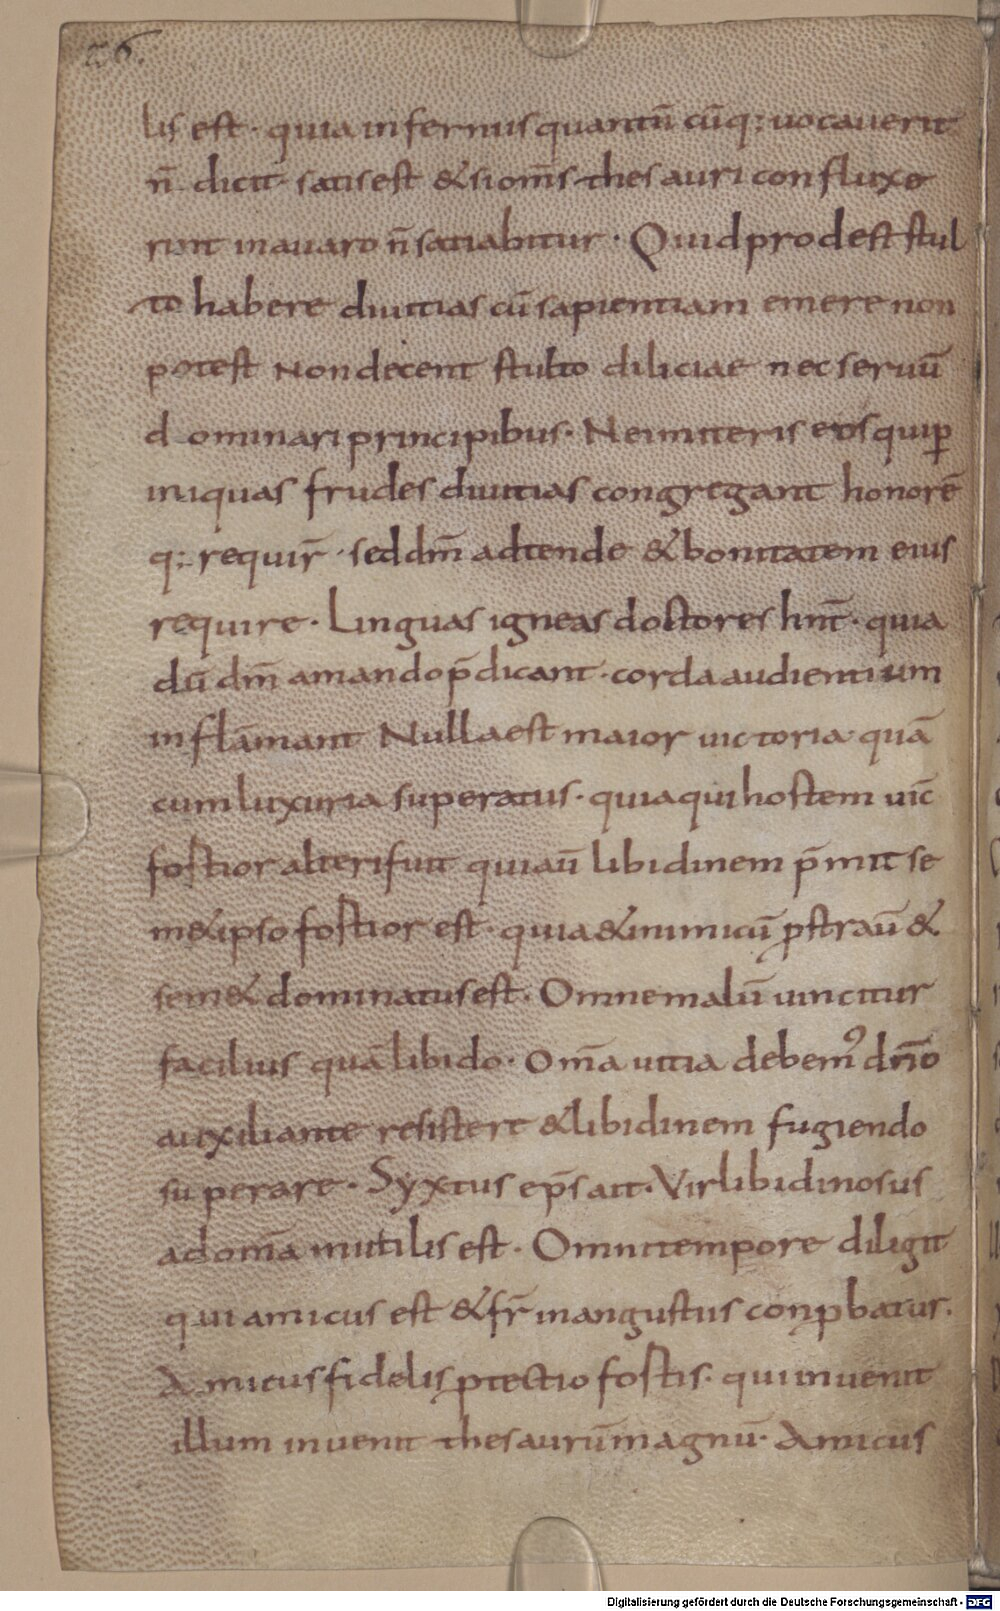 26.
lis est · quia infernus quantū cūq; uocauerit
n̄ dicit · satis est & si om̄s thesauri confluxe
rint in auaro n̄ satiabitur · Quid prodest stul
to habere diuitias cū sapientiam emere non
potest Non decent stulto diliciae nec seruū
dominari principibus · Ne imiteris eos qui ꝑ
iniquas frudes diuitias congregant honorē
q; requir̄ · sed dm̄ adtende & bonitatem eius
require · Linguas igneas doctores hn̄t · quia
dū dm̄ amando p̄dicant · corda audientium
inflāmant Nulla est maior uictoria quā
cum luxuria superatus · quia qui hostem uic̄
fortior alteri fuit qui aū libidinem p̄mit se
m&ipso fortior est · quia & inimicū ꝓstrau̅ &
sem& dominatus est · Omne malū uincitur
facilius quā libido · Om̄a uitia debem᾽ dn̄o
auxiliante resistere & libidinem fugiendo
superare · Syxtus ep̄s ait · Vir libidinosus
ad om̄a inutilis est · Omni tempore diligit
qui amicus est & fr̄ in angustiis conꝓbatur ·
Amicus fidelis ꝓtectio fortis · qui inuenit
illum inuenit thesaurū magnū · Amicus
Digitalisierung gefördert durch die Deutsche Forschungsgemeinschaft - DFG